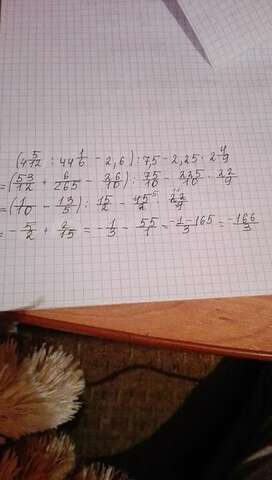 (4 5/12 : 44 1/6 - 2,6) : 7,5 - 2,25 · 2 4/9
= (53/12 · 6/265 - 26/10) : 75/10 - 225/10 · 22/9
= (1/10 - 13/5) : 15/2 - 45/2 · 22/9
= - 5/2 · 2/15 = - 1/3 - 55/1 = -1-165/3 = -166/3